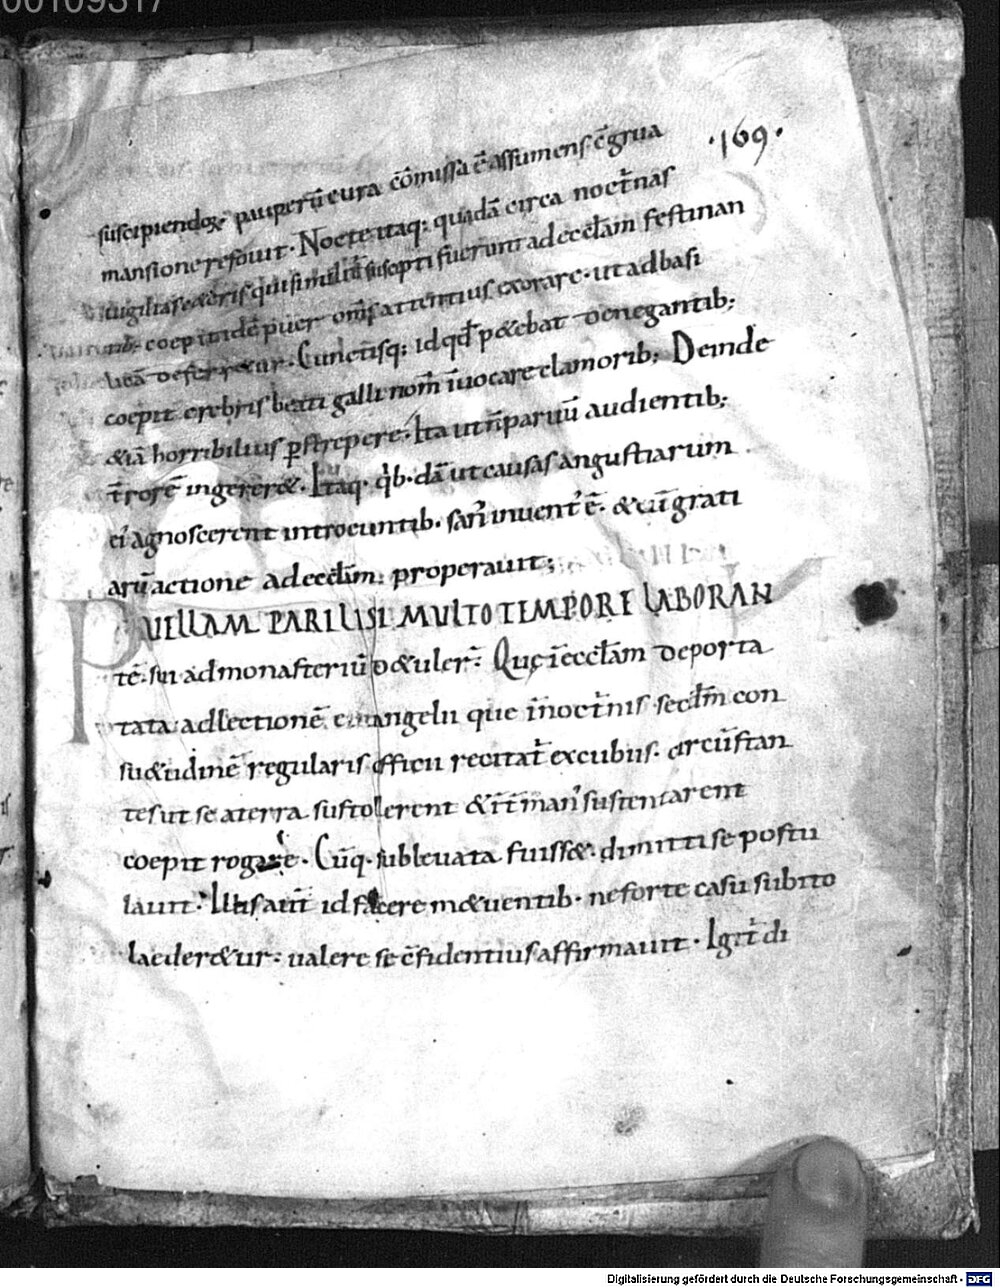 00109317
·169·
suscipiendoꝝ pauperū cura cōmissa ē assumens ēgrua
mansione refouit· Nocte itaq; quadā circa noct̄nas
uigilias &dris qui similit̄ suscepti fuerunt ad eccl̄am festinan
coepit idē puer om̄s attentius exorare· ut ad basi
licā deferretur· Cunctisq; id qd̄ p&ebat denegantib;
coepit crebris beati galli nom̄ īuocare clamorib; Deinde
&iā horribilius ꝑstrepere· Ita ut n̄ paruū audientib;
t̄rorē ingerer&· Itaq· q̇b·dā ut causas angustiarum
ei' agnoscerent introeuntib· san' inuent' ē· & cū grati
arū actione ad eccl̄am properauit;
PUELLAM PARILISI MULTO TEMPORE LABORAN
tē· sui ad monasteriū d&uler̄· Quę ī eccl̄am deporta
tata ad lectionē euangelii que ī noct̄nis secd̄m con
su&udinē regularis officii recitat̄ excubiis· circūstan
tes ut se a terra sustolerent & īt̄ man' sustentarent
coepit rogare· Cūq· subleuata fuiss& dimitti se postu
lauit· Illis aut̄ id facere m&uentib· ne forte casu subito
laeder&ur· ualere se c̄fidentius affirmauit· Igit̄ di
Digitalisierung gefördert durch die Deutsche Forschungsgemeinschaft · DFG